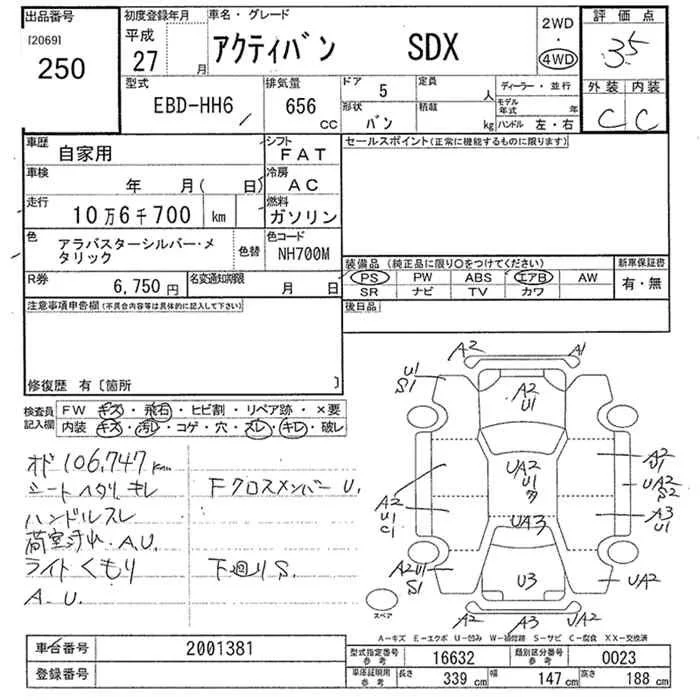 出品番号
[2069]
250
初度登録年月
平成
27 月
車名・グレード
アクティバン SDX
2WD
・
4WD
評価点
3.5
外装 内装
C C
型式
EBD-HH6
排気量
656 cc
ドア 5
定員 人
形状 バン
積載 kg
ディーラー・並行
モデル年式 年
ハンドル 左・右
車歴
自家用
シフト
FAT
車検
年 月( 日)
冷房
AC
走行
10万6千700 km
燃料
ガソリン
色
アラバスターシルバー・メタリック
色替
色コード
NH700M
R券
6,750 円
名変通知期限
月 日
セールスポイント(正常に機能するものに限ります)
装備品 (純正品に限り○をつけてください)
PS PW ABS エアB AW
SR ナビ TV カワ
新車保証書
有・無
後日品
注意事項申告欄(不具合内容等は具体的に記入して下さい)
修復歴 有〔箇所 〕
検査員記入欄
FW キズ・飛石・ヒビ割・リペア跡・×要
内装 キズ・汚レ・コゲ・穴・スレ・キレ・破レ
オド 106,747 km
シートヘタリ キレ
Fクロスメンバー U.
ハンドルスレ
荷室汚れ. A.U.
ライトくもり
下廻り S.
A.U.
A2
A1
U1
S1
A2
U1
A2
U1
UA2
S2
UA2
U1
A2
U1
C1
A3
U1
UA3
A2U1
S1
U3
UA2
A2
A3
UA2
スペア
A−キズ E−エクボ U−凹み W−補修跡 S−サビ C−腐食 XX−交換済
車台番号
2001381
登録番号
型式指定番号
参考
16632
類別区分番号
参考
0023
車庫証明用
参考
長さ 339 cm
幅 147 cm
高さ 188 cm